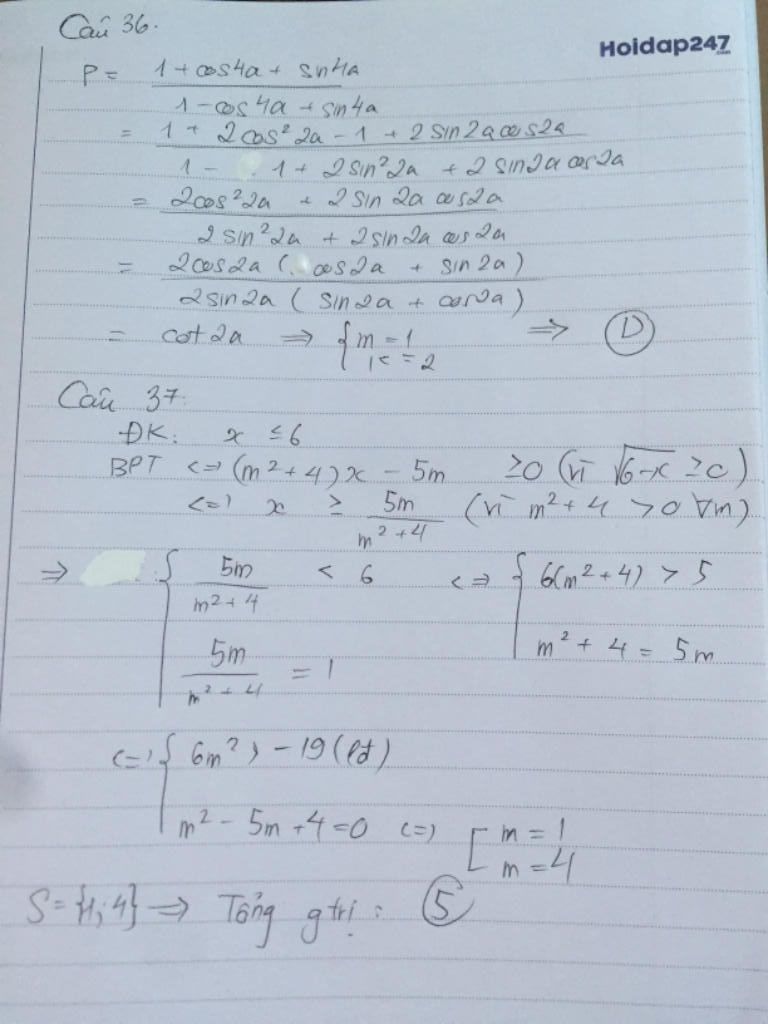 Câu 36.
Hoidap247.com
P = (1 + cos4a + sin4a) / (1 - cos4a + sin4a)
= (1 + 2cos²2a - 1 + 2sin2a cos2a) / (1 - 1 + 2sin²2a + 2sin2a cos2a)
= (2cos²2a + 2sin2a cos2a) / (2sin²2a + 2sin2a cos2a)
= (2cos2a (cos2a + sin2a)) / (2sin2a (sin2a + cos2a))
= cot2a => { m = 1 => D
k = 2
Câu 37:
ĐK: x ≤ 6
BPT <=> (m² + 4)x - 5m ≥ 0 (vì √(6-x) ≥ 0)
<=> x ≥ 5m / (m² + 4) (vì m² + 4 > 0 ∀m)
=> { 5m / (m² + 4) < 6 <=> { 6(m² + 4) > 5
5m / (m² + 4) = 1 m² + 4 = 5m
<=> { 6m² > -19 (lđ)
m² - 5m + 4 = 0 <=> [ m = 1
m = 4
S = {1; 4} => Tổng g trị: 5